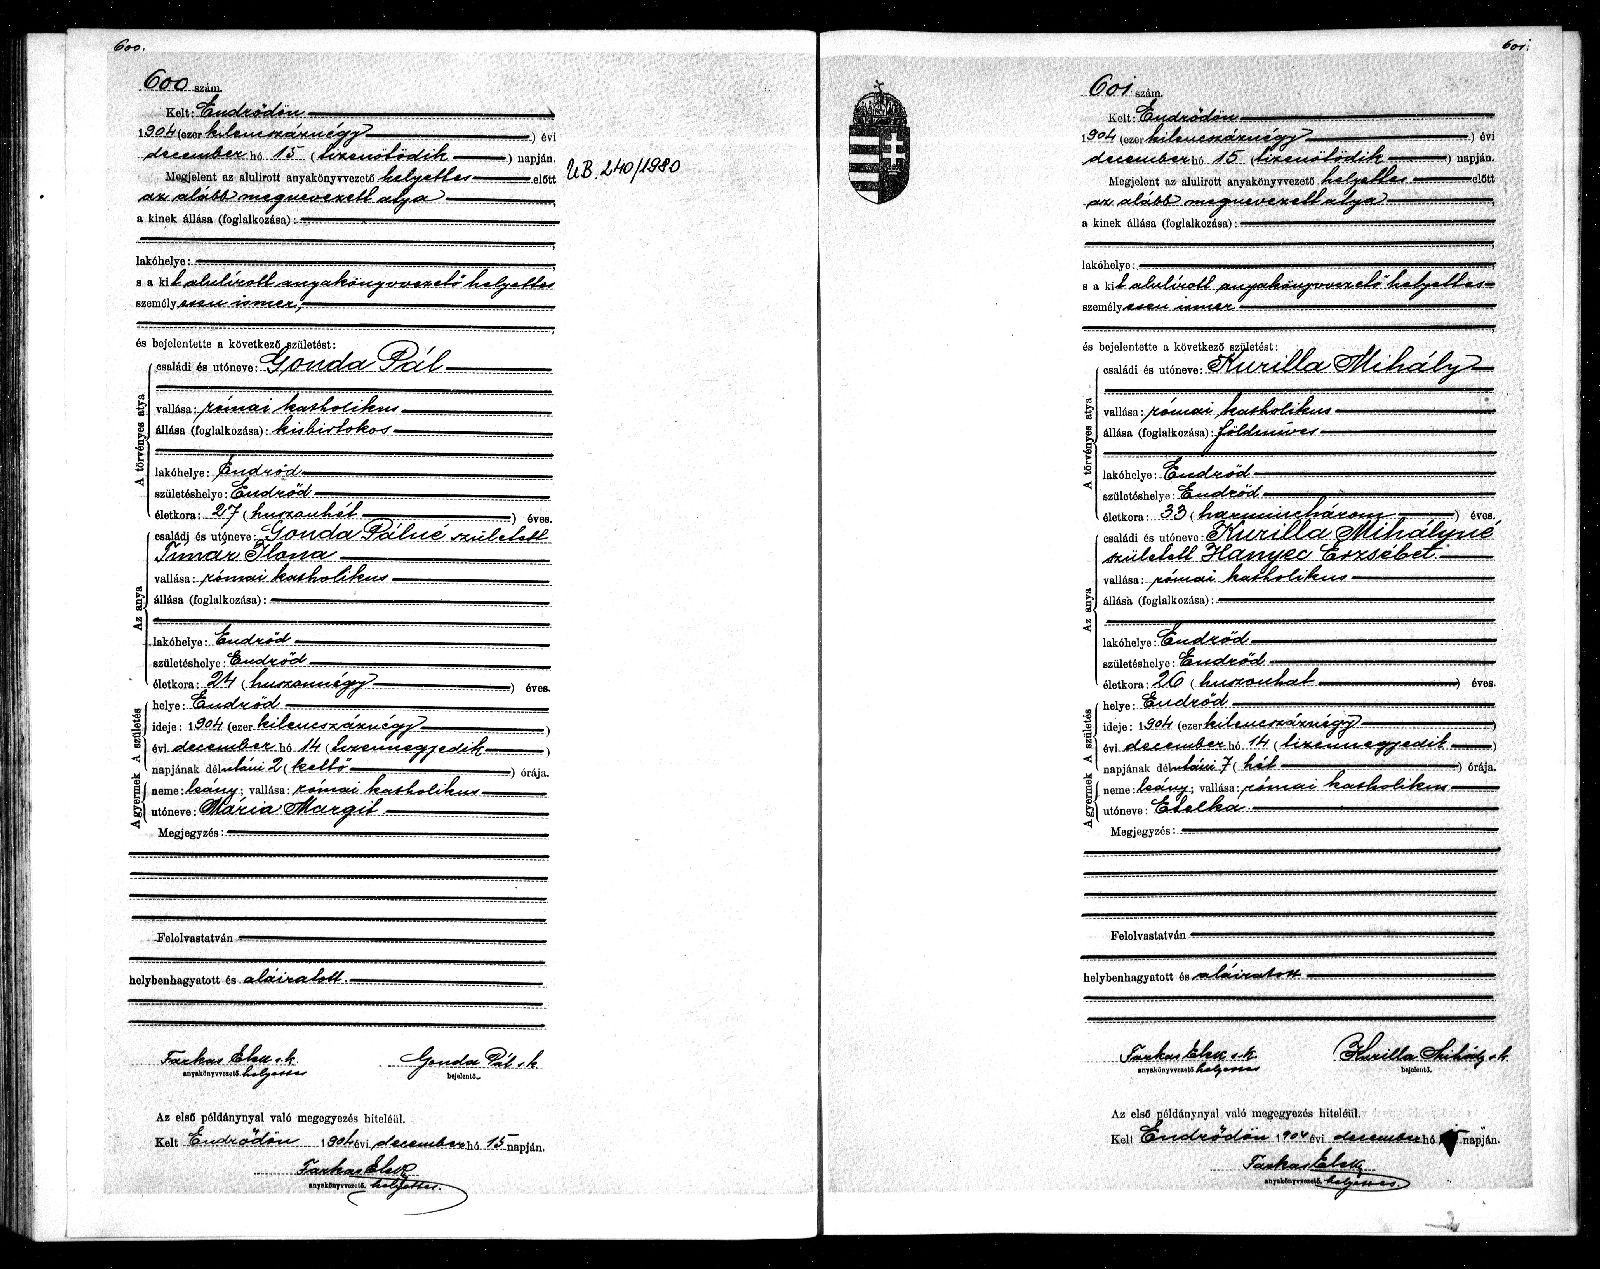 600.
600 szám.
Kelt: Endrődön
1904 (ezer kilenczszáznégy) évi
december hó 15 (tizenötödik) napján.
Megjelent az alulirott anyakönyvvezető helyettes előtt
az alább megnevezett atya
a kinek állása (foglalkozása):
lakóhelye:
s a kit alulírott anyakönyvvezető helyettes
személyesen ismer,
és bejelentette a következő születést:
A törvényes atya
családi és utóneve: Gonda Pál
vallása: római katholikus
állása (foglalkozása): kisbirtokos
lakóhelye: Endrőd
születéshelye: Endrőd
életkora: 27 (huszonhét) éves.
Az anya
családi és utóneve: Gonda Pálné született
Timar Ilona
vallása: római katholikus
állása (foglalkozása):
lakóhelye: Endrőd
születéshelye: Endrőd
életkora: 24 (huszonnégy) éves.
A születés
helye: Endrőd
ideje: 1904 (ezer kilenczszáznégy)
évi december hó 14 (tizennegyedik)
napjának délutáni 2 (kettő) órája.
A gyermek
neme: leány; vallása: római katholikus
utóneve: Mária Margit
Megjegyzés:
Felolvastatván
helybenhagyatott és aláiratott.
Farkas Elek s.k. Gonda Pál s.k.
anyakönyvvezető helyettes bejelentő.
Az első példánynyal való megegyezés hiteléül.
Kelt Endrődön 1904 évi december hó 15 napján.
Farkas Elek
anyakönyvvezető. helyettes.
UB. 240/1980
601.
601 szám.
Kelt: Endrődön
1904 (ezer kilenczszáznégy) évi
december hó 15 (tizenötödik) napján.
Megjelent az alulirott anyakönyvvezető helyettes előtt
az alább megnevezett atya
a kinek állása (foglalkozása):
lakóhelye:
s a kit alulírott anyakönyvvezető helyettes
személyesen ismer
és bejelentette a következő születést:
A törvényes atya
családi és utóneve: Kurilla Mihály
vallása: római katholikus
állása (foglalkozása): földmíves
lakóhelye: Endrőd
születéshelye: Endrőd
életkora: 33 (harminczhárom) éves.
Az anya
családi és utóneve: Kurilla Mihályné
született Hanyec Erzsébet
vallása: római katholikus
állása (foglalkozása):
lakóhelye: Endrőd
születéshelye: Endrőd
életkora: 26 (huszonhat) éves.
A születés
helye: Endrőd
ideje: 1904 (ezer kilenczszáznégy)
évi december hó 14 (tizennegyedik)
napjának délutáni 7 (hét) órája.
A gyermek
neme: leány; vallása: római katholikus
utóneve: Etelka
Megjegyzés:
Felolvastatván
helybenhagyatott és aláiratott
Farkas Elek s.k. Kurilla Mihály s.k.
anyakönyvvezető helyettes bejelentő.
Az első példánynyal való megegyezés hiteléül.
Kelt Endrődön 1904 évi december hó napján.
Farkas Elek
anyakönyvvezető. helyettes.